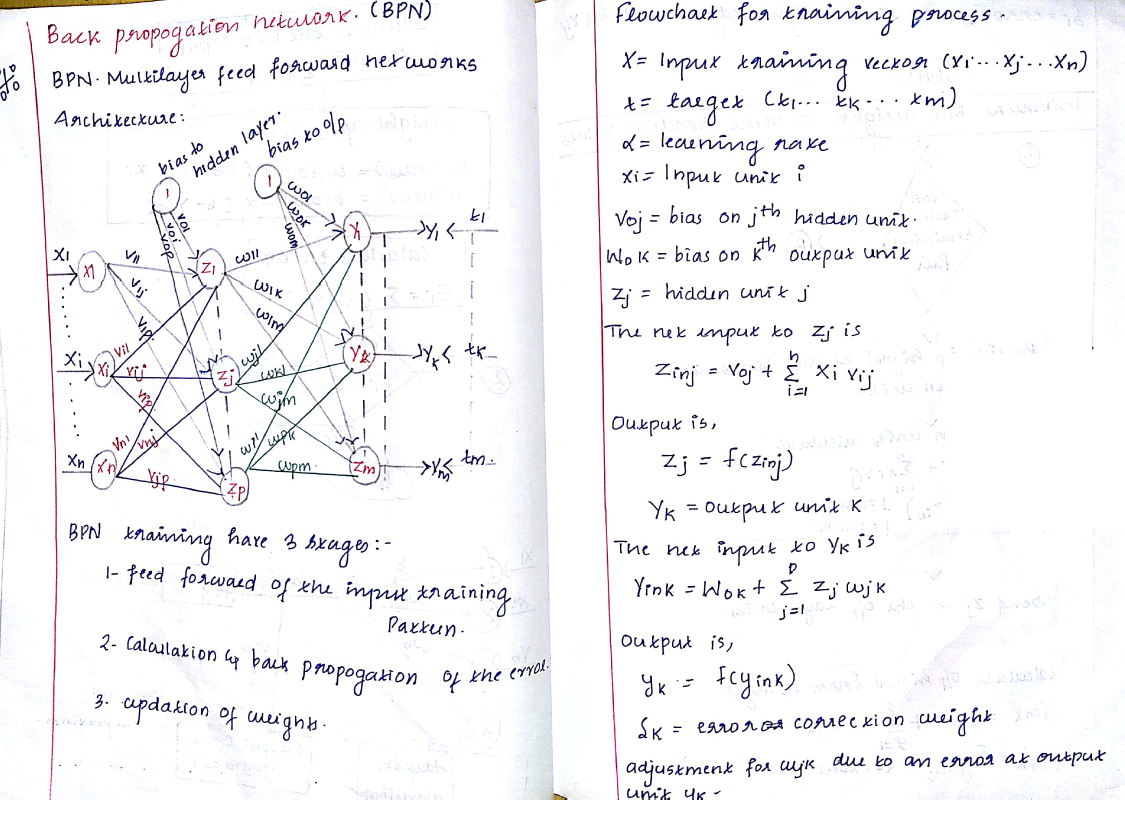 Back propogation network. (BPN)
BPN. Multilayer feed forward networks
Architecture:
bias to
hidden layer.
bias to o/p
1
1
w01
w0k
w0m
v01
v0j
v0p
t1
X1
X1
v11
v1j
v1p
Z1
w11
w1k
w1m
Y
Y1
Xi
Xi
vi1
vij
vip
Zj
wj1
wk1
wjm
Yk
Yk
tk
Xn
Xn
vn1
vnj
vjp
Zp
wpk
wpm
Zm
Ym
tm
BPN training have 3 stages:-
1- feed forward of the input training
Pattern.
2- Calculation & back propogation of the error.
3. updation of weights.
Flowchart for training process.
X= Input training vector (X1...Xj...Xn)
t= target (t1... tk... tm)
α= learning rate
xi= Input unit i
Voj = bias on jth hidden unit.
Wok = bias on kth output unit
Zj = hidden unit j
The net input to Zj is
Zinj = Voj + Σ i=1 n Xi vij
Output is,
Zj = f(Zinj)
YK = output unit K
The net input to YK is
YinK = WOK + Σ j=1 p Zj wjk
Output is,
yk = f(yink)
δK = error correction weight
adjustment for wjk due to an error at output
unit yk -